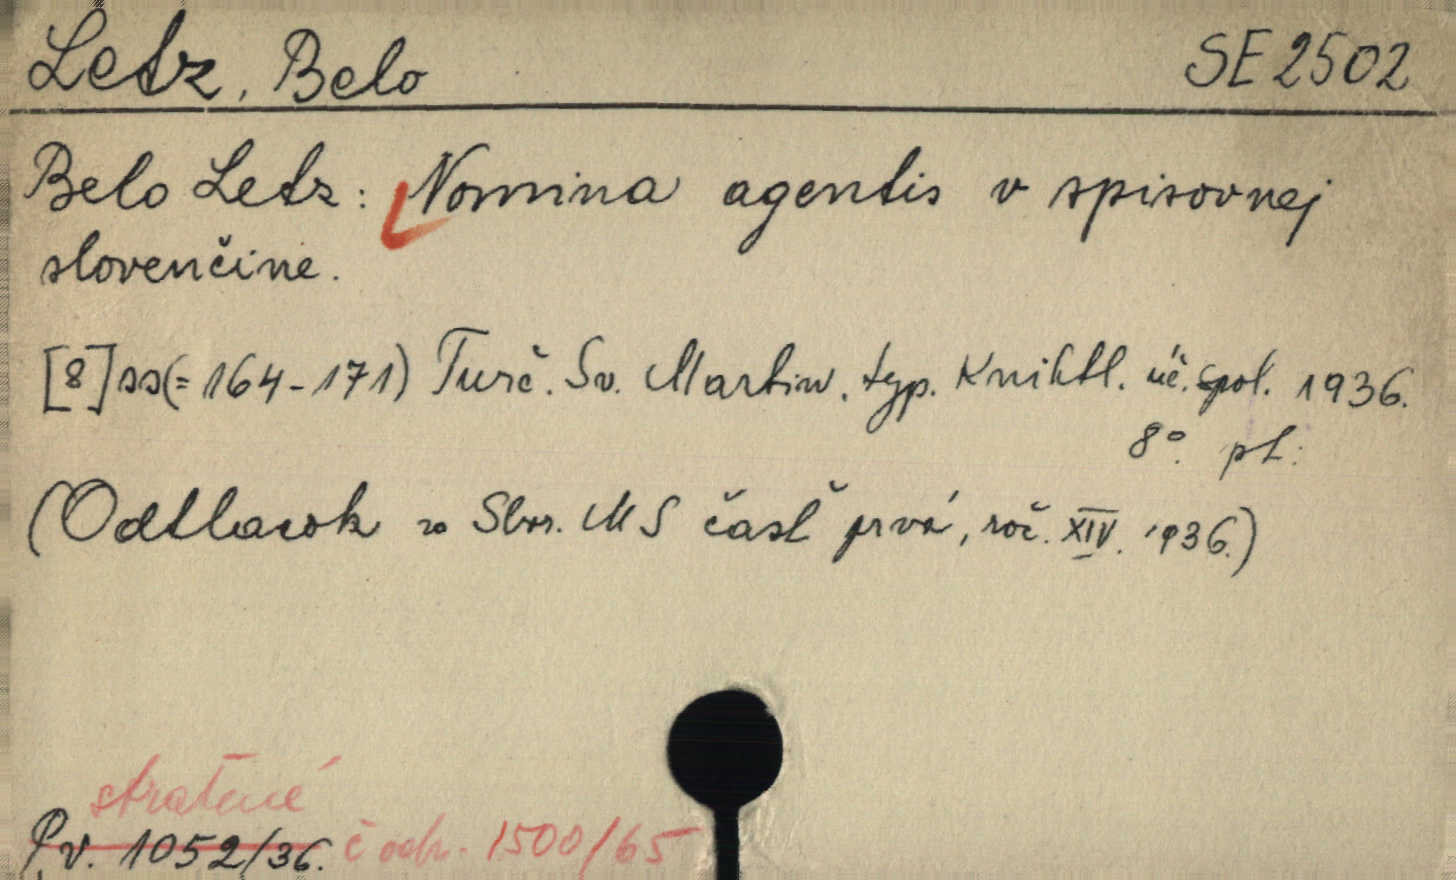 Letz, Belo SE 2502
Belo Letz: Nomina agentis v spisovnej
slovenčine.
[8] ss (= 164-171) Turč. Sv. Martin. typ. Knihtl. úč. spol. 1936.
8°. pl.
(Odtlačok zo Sbor. MS časť prvá, roč. XIV. 1936.)
stratené
P.v. 1052/36. č odp. 1500/65